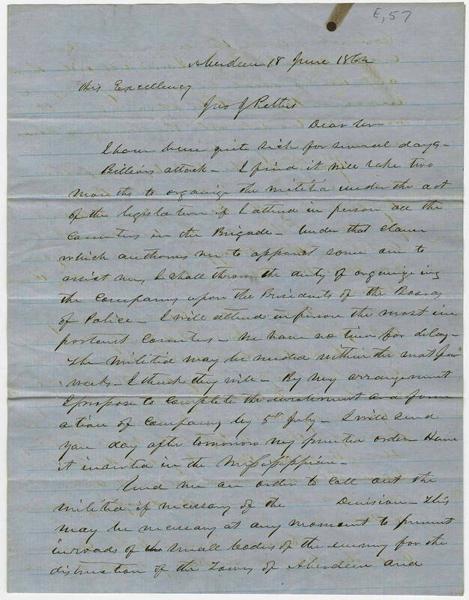 E, 57
Aberdeen 18 June 1862
His Excellency
Jno J Pettus
Dear Sir
I have been quite sick for several days
Billious attack - I find it will take two
months to organize the militia under the act
of the legislature if I attend in person all the
Counties in the Brigade - Under that clause
which authorises me to appoint some one to
assist me, I shall throw the duty of organizeing
the Companies upon the Presidents of the Boards
of Police - I will attend in person the most im
portant Counties - We have no time for delay -
The Militia may be needed within the next few
weeks - I think they will - By my arrangement
I propose to complete the enrolement and form
ation of Companies by 5th July - I will send
you day after tomorrow my printed order Have
it inserted in the Mississippian -
Send me an order to call out the
militia if necessary of the Division - This
may be necessary at any moment to prevent
inroads of small bodies of the enemy for the
distruction of the Towns of Aberdeen and